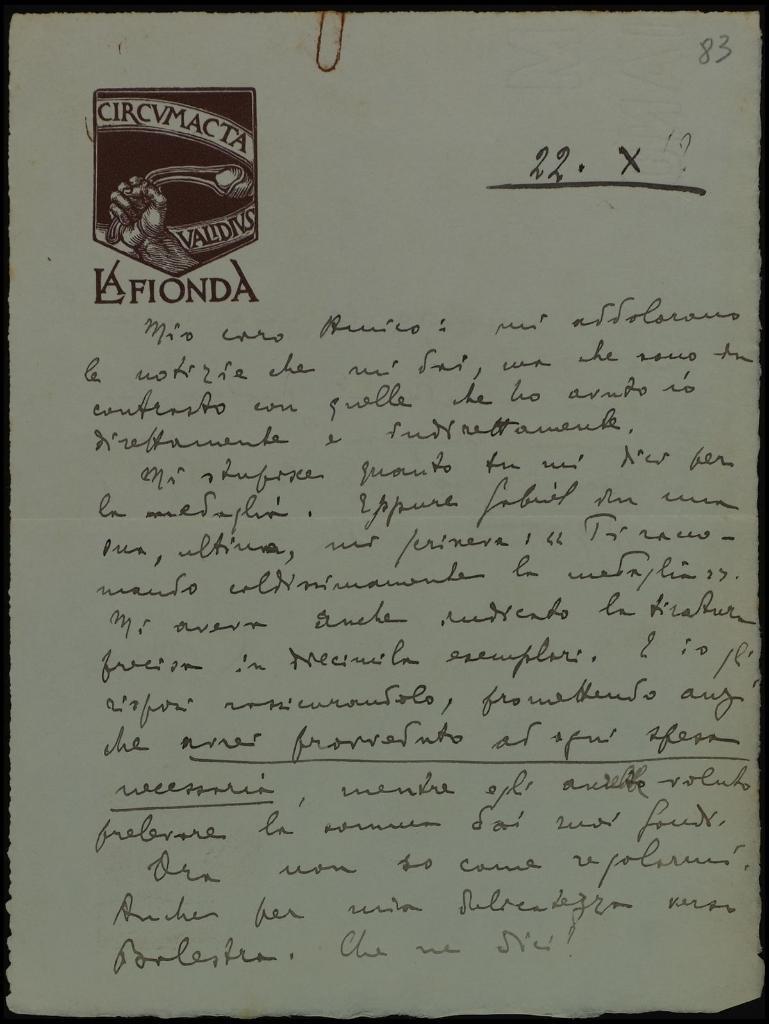 83
CIRCVMACTA
VALIDIVS
LA FIONDA
22. X
Mio caro Amico: mi addolorano
le notizie che mi dai, ma che sono in
contrasto con quelle che ho avuto io
direttamente e indirettamente.
Mi stupisce quanto tu mi dici per
la medaglia. Eppure Gabriel in una
sua, ultima, mi scriveva: « Ti racco-
mando caldissimamente la medaglia ».
Mi aveva anche indicato la tiratura
precisa in diecimila esemplari. E io gli
risposi rassicurandolo, promettendo anzi
che avrei provveduto ad ogni spesa
necessaria, mentre egli avrebbe voluto
prelevare la somma dai suoi fondi.
Ora non so come regolarmi.
Anche per mia delicatezza verso
Balestra. Che ne dici?